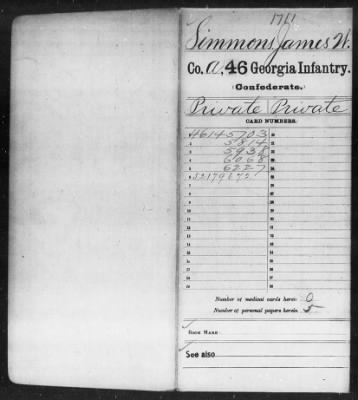 1711
Simmons, James W.
Co. A, 46 Georgia Infantry.
(Confederate.)
Private Private
CARD NUMBERS.
1 46145703
2 5814
3 5938
4 6068
5 6227
6 52179672
Number of medical cards herein 0
Number of personal papers herein 5
BOOK MARK:
See also